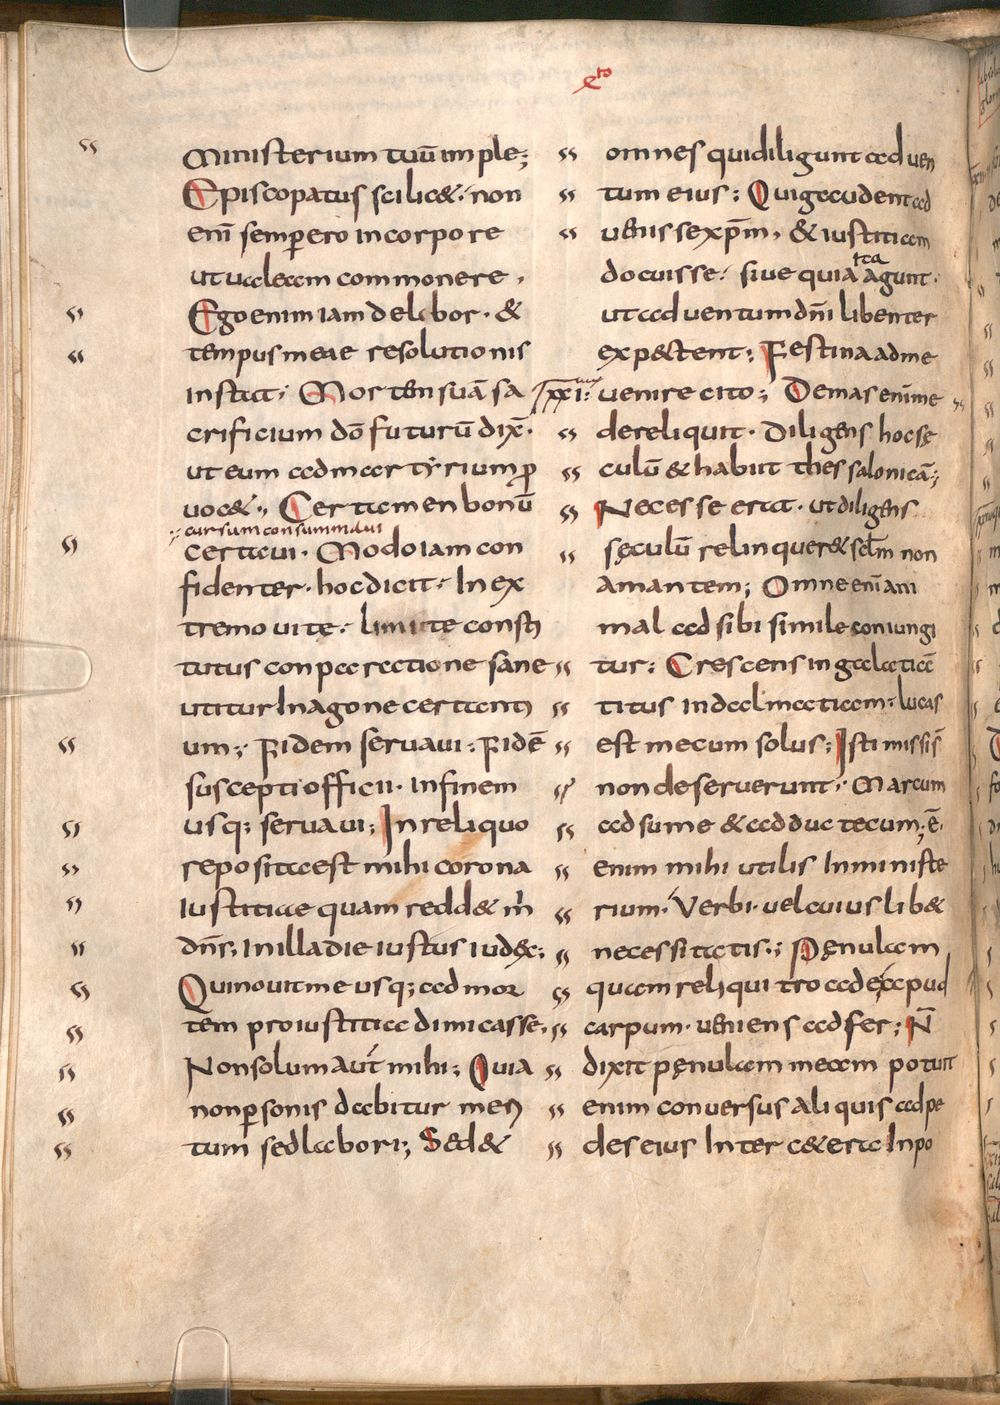 xto
Ministerium tuū imple;
Episcopatus scilic&; non
enī semp ero in corpore
ut ualeam commonere,
Ego enim iam delibor. &
tempus meae resolutionis
instat; Mortem suā sa
crificium dō futurū dix̄.
ut eum ad martyrium p
uoc&., Certamen bonū
cursum consummaui
certaui. Modo iam con
fidenter. hoc dicit. In ex
tremo uitę. limite consti
tutus conparatione sane
utitur In agone certanti
um; Fidem seruaui; Fidē
suscepti officii. in finem
usq; seruaui; In reliquo
reposita est mihi corona
Iustitiae quam redd& m̄
dn̄s. In illa die iustus iudęx;
Qui nouit me usq; ad mor
tem pro iustitia dimicasse,
Non solum aut̄ mihi; Quia
non psonis dabitur meri
tum sed labori; Sed &
omnes qui diligunt aduen
tum eius; Qui gaudent ad
uenisse xp̄m, & iustitiam
docuisse; siue quia ita agunt.
ut aduentum dn̄i libenter
expectent; Festina ad me
XXI: uenire cito; Demas enī me
dereliquit. Diligens hoc sę
culū & habiit thessalonicā;
Necesse erat. ut diligens
sęculū relinquer& sc̄lm non
amantem; Omne enī ani
mal ad sibi simile coniungi
tur; Crescens in galatiā
titus in dalmatiam. lucas
est mecum solus; Isti missis
non deseruerunt; Marcum
adsume & adduc tecum; ē.
enim mihi utilis In ministe
rium. Verbi. uel cuius lib&
necessitatis.; Pęnulam
quam reliqui troade apud
carpum. ueniens adfer; N̄
dixit pęnulam meam potuit
enim conuersus aliquis ad pe
des eius Inter c&era In po